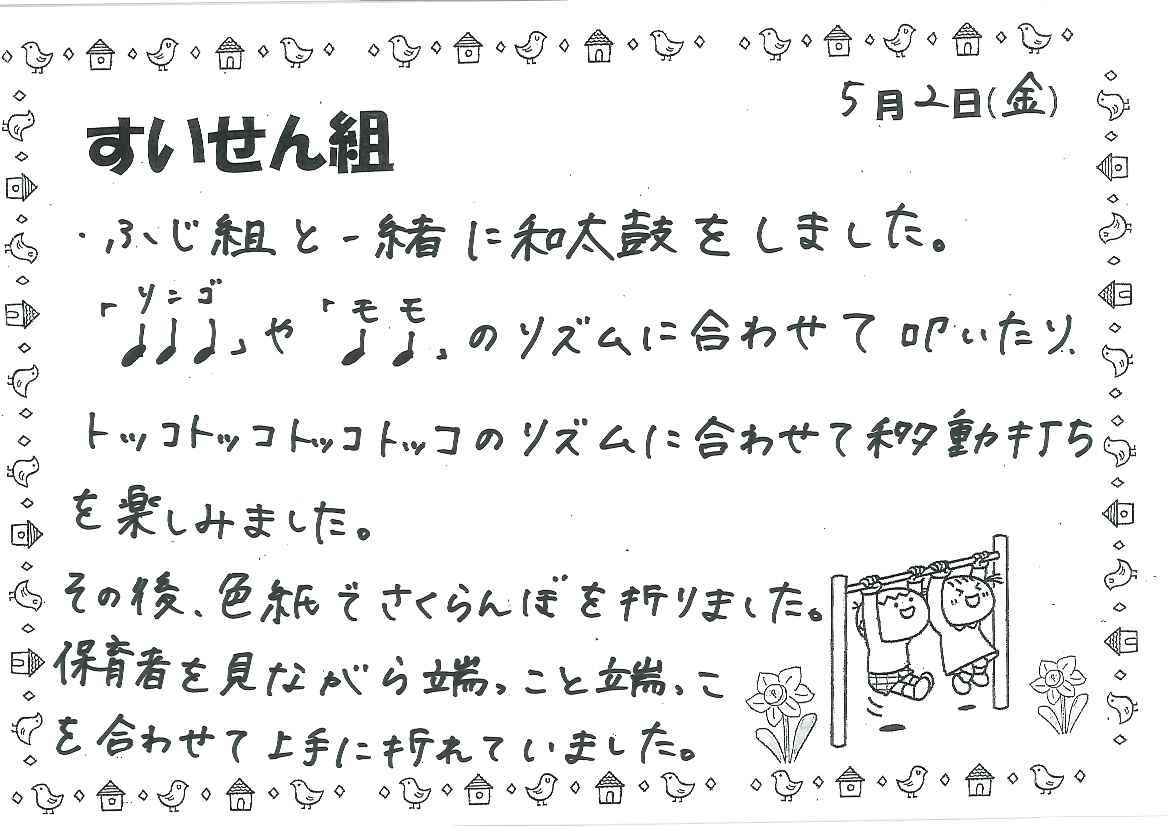 5月2日(金)
すいせん組
・ふじ組と一緒に和太鼓をしました。
「リンゴ
♩♩♩」や「モモ
♩♩」のリズムに合わせて叩いたり、
トッコトッコトッコトッコのリズムに合わせて移動打ち
を楽しみました。
その後、色紙でさくらんぼを折りました。
保育者を見ながら端っこと端っこ
を合わせて上手に折れていました。